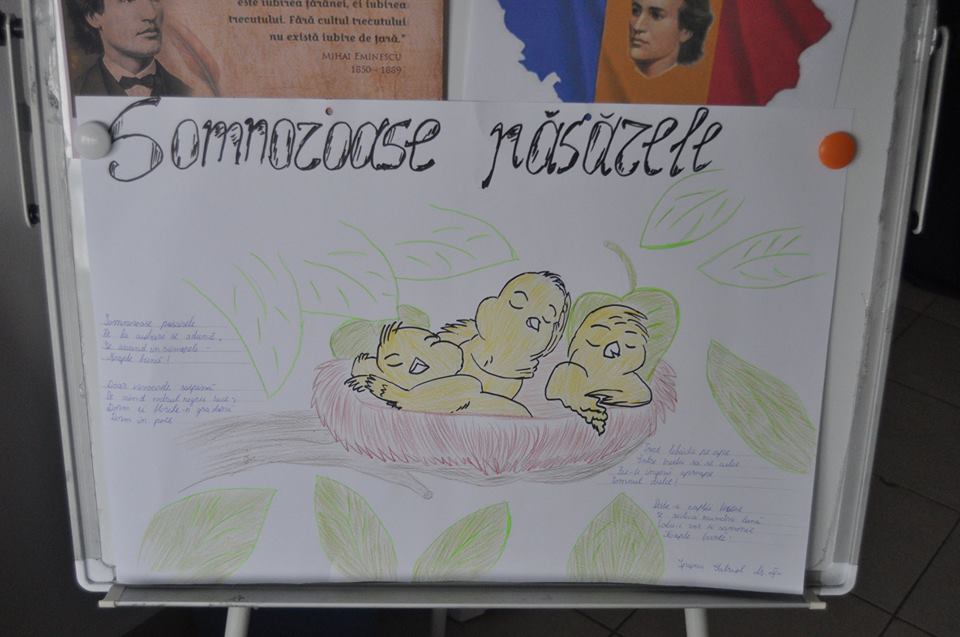 este iubirea țărânei, ci iubirea
trecutului. Fără cultul trecutului
nu există iubire de țară."
MIHAI EMINESCU
1850 - 1889
Somnoroase păsărele
Somnoroase pasarele
Pe la cuiburi se aduna,
Se ascund in ramurele -
Noapte buna!
Doar izvoarele suspina
Pe cand codrul negru tace;
Dorm si florile-n gradina
Dorm in pace
Trece lebada pe ape
Intre trestii sa se culce
Fie-ti ingerii aproape
Somnul dulce!
Peste a noptii
Se ridica mandra luna
Totu-i vis si armonie
Noapte buna!